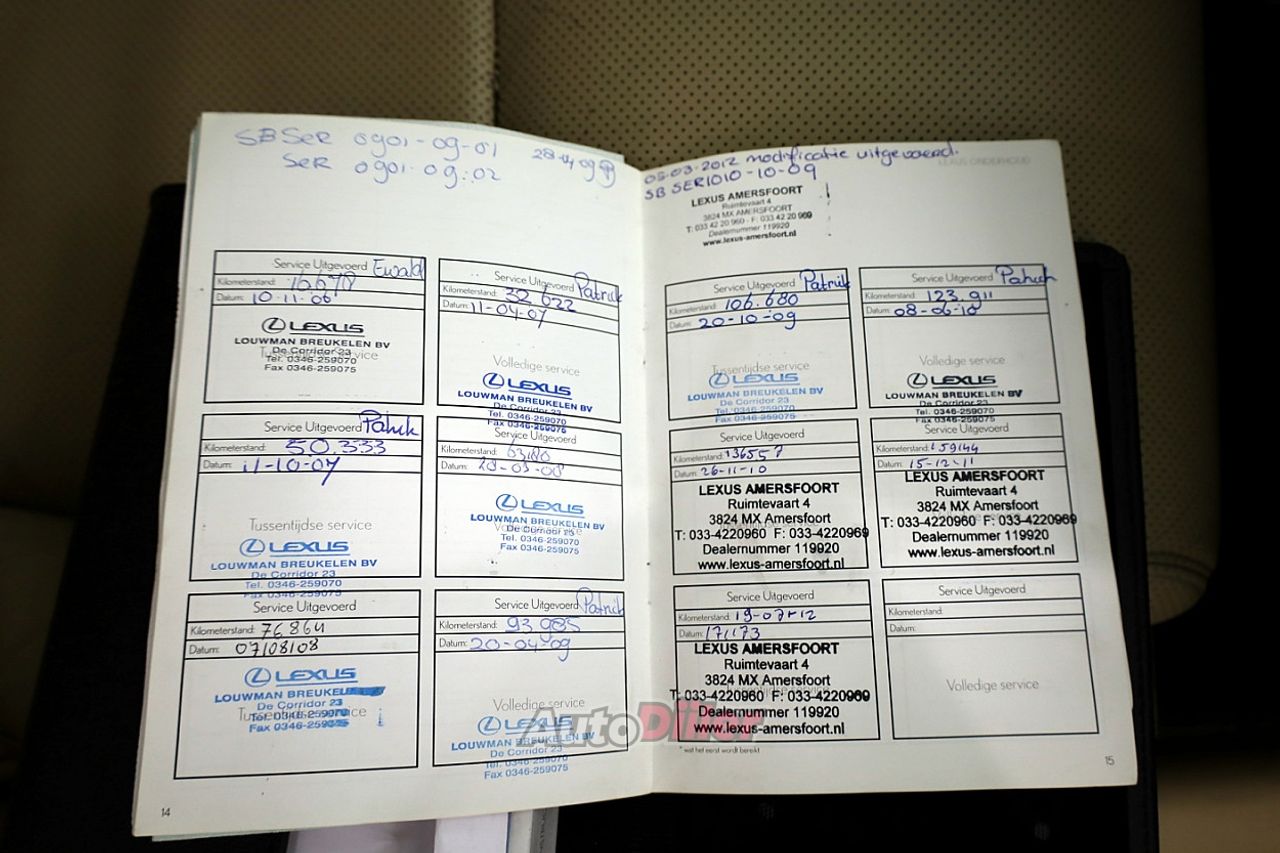 SB SER 0901-09-01
28-04-09
SER 0901-09-02
Service Uitgevoerd Ewald
Kilometerstand: 16.678
Datum: 10-11-06
LEXUS
LOUWMAN BREUKELEN BV
De Corridor 23
Tussentijdse service
Tel. 0346-259070
Fax 0346-259075
Service Uitgevoerd Patrick
Kilometerstand: 32.622
Datum: 11-04-07
Volledige service
LEXUS
LOUWMAN BREUKELEN BV
De Corridor 23
Tel. 0346-259070
Fax 0346-259075
Service Uitgevoerd Patrick
Kilometerstand: 50.333
Datum: 11-10-07
Tussentijdse service
LEXUS
LOUWMAN BREUKELEN BV
De Corridor 23
Tel. 0346-259070
Fax 0346-259075
Service Uitgevoerd
Kilometerstand:
Datum:
LEXUS
LOUWMAN BREUKELEN BV
Volledige service
De Corridor 23
Tel. 0346-259070
Fax 0346-259075
Service Uitgevoerd
Kilometerstand: 76864
Datum: 07/08/08
LEXUS
LOUWMAN BREUKELEN
De Corridor 23
Tussentijdse service
Tel. 0346-259070
Fax 0346-259075
Service Uitgevoerd Patrick
Kilometerstand: 93.985
Datum: 20-04-09
Volledige service
LEXUS
LOUWMAN BREUKELEN BV
De Corridor 23
Tel. 0346-259070
Fax 0346-259075
14
05-03-2012 modificatie uitgevoerd.
LEXUS ONDERHOUD
SB SER1010-10-09
LEXUS AMERSFOORT
Ruimtevaart 4
3824 MX AMERSFOORT
T: 033 42 20 960 - F: 033 42 20 969
Dealernummer 119920
www.lexus-amersfoort.nl
Service Uitgevoerd Patrick
Kilometerstand: 106.680
Datum: 20-10-09
Tussentijdse service
LEXUS
LOUWMAN BREUKELEN BV
De Corridor 23
Tel. 0346-259070
Fax 0346-259075
Service Uitgevoerd Patrick
Kilometerstand: 123.911
Datum: 08-06-10
Volledige service
LEXUS
LOUWMAN BREUKELEN BV
De Corridor 23
Tel. 0346-259070
Fax 0346-259075
Service Uitgevoerd
Kilometerstand: 136557
Datum: 26-11-10
LEXUS AMERSFOORT
Ruimtevaart 4
3824 MX Amersfoort
T: 033-4220960 F: 033-4220969
Dealernummer 119920
www.lexus-amersfoort.nl
Service Uitgevoerd
Kilometerstand: 159144
Datum: 15-12-11
LEXUS AMERSFOORT
Ruimtevaart 4
3824 MX Amersfoort
T: 033-4220960 F: 033-4220969
Dealernummer 119920
www.lexus-amersfoort.nl
Service Uitgevoerd
Kilometerstand: 19-07-12
Datum: 171173
LEXUS AMERSFOORT
Ruimtevaart 4
3824 MX Amersfoort
T: 033-4220960 F: 033-4220969
Dealernummer 119920
www.lexus-amersfoort.nl
Service Uitgevoerd
Kilometerstand:
Datum:
Volledige service
* wat het eerst wordt bereikt
15